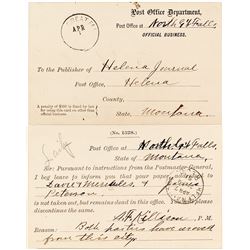 Post Office Department,
Post Office at North Gt Falls
OFFICIAL BUSINESS.
APR
To the Publisher of Helena Journal
Post Office at Helena
County,
State, Montana
A penalty of $300 is fixed by law
for using this card for other than
official business.
(No. 1328.)
Daily
Post Office at North Gt Falls,
State of Montana,
Sir: Pursuant to instructions from the Postmaster General, I
beg leave to inform you that your paper, addressed to
David
Peterson
not taken out, but remains dead in this office. You will please
discontinue the same.
P. M.
REASON: Both parties have moved
from this city